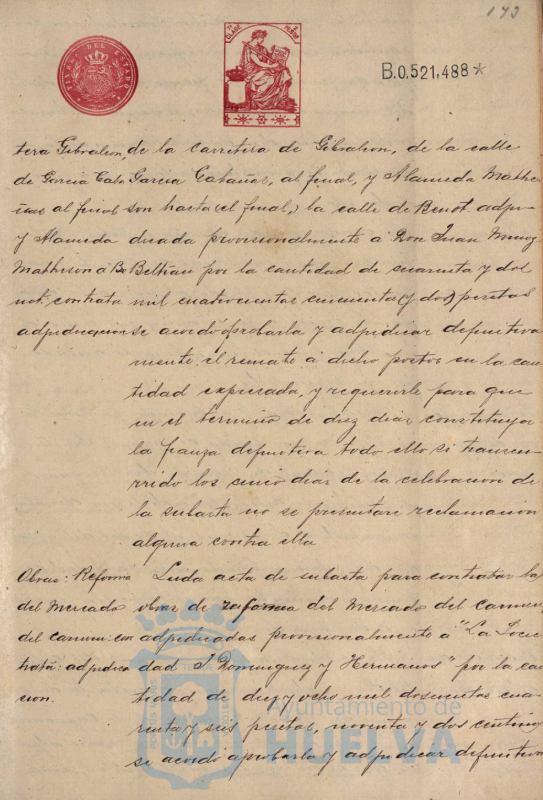 173
TIMBRE DEL ESTADO
7ª CLASE
B.0,521,488*
tera Gibraleon, de la carretera de Gibraleon, de la calle
de Garcia Caba Garcia Cabañas, al final, y Alameda Mathe
al final son hasta (el final,) la calle de Benot. adju
y Alameda dicada provisionalmente á Don Juan Muñoz
Matheson á Be Beltran por la cantidad de cuarenta y dos
not, contrata mil cuatrocientas cincuenta (y dos) pesetas
adjudicación se acordó aprobarla y adjudicar definitiva
mente el remate á dicho postor en la can
tidad expresada, y requerirle para que
en el término de diez dias constituya
la fianza definitiva todo ello si transcu-
rrido los cinco dias de la celebracion de
la subasta no se presentare reclamacion
alguna contra ella
Obras: Reforma Leida acta de subasta para contratar las
del Mercado obras de reforma del Mercado del Carmen,
del carmen: con adjudicadas provisionalmente á "La Socie
trata: adjudica dad S. Dominguez y Hermanos" por la can
cion. tidad de diez y ocho mil doscientas cua
renta y seis pesetas, noventa y dos centimos
se acordó aprobarla y adjudicar definitiva
Ayuntamiento de
HUELVA